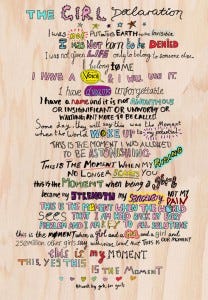 THE GIRL Declaration
I was not PUT on EARTH to be invisible.
I was Not born to be DENIED.
I was not given LIFE only to belong to someone else.
I belong to ME
I HAVE A Voice & I WILL USE IT.
I have dreams unforgettable
I have a name and it is not ANONYMOUS
OR INSIGNIFICANT OR UNWORTHY OR
WAITING ANY MORE TO BE CALLED.
Some day, they will say: this was the Moment
when the world WOKE UP to my potential.
THIS IS THE MOMENT I WAS ALLOWED
TO BE ASTONISHING.
THIS IS THE MOMENT WHEN MY RISING
NO LONGER SCARES YOU
this is the MOMENT when being a girl
became my STRENGTH my Sanctuary NOT MY PAIN
THIS IS THE MOMENT WHEN THE WORLD
SEES THAT I AM HELD BACK BY EVERY
PROBLEM AND I AM KEY TO ALL SOLUTIONS
this is the moment when a girl and a girl and
250 million other girls say with voices loud that THIS IS OUR MOMENT
this is my MOMENT
THIS, YES THIS IS THE MOMENT